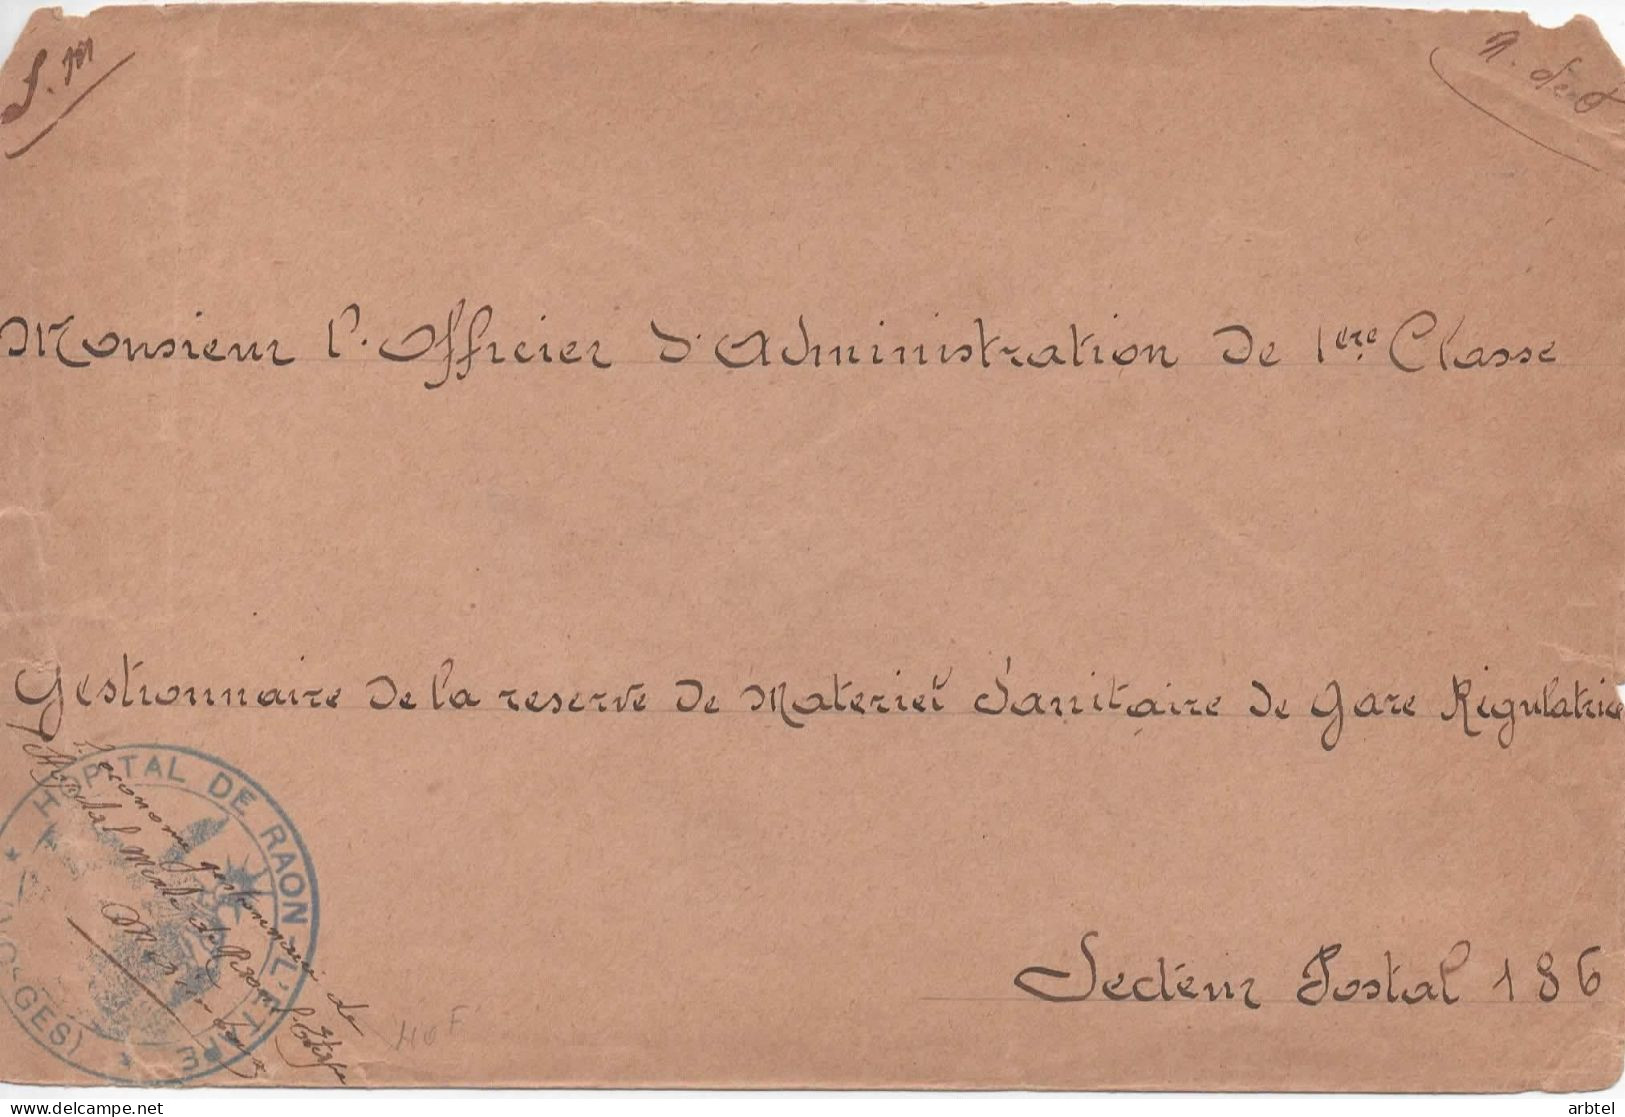 S. M
Monsieur l'Officier d'Administration de 1ère Classe
Gestionnaire de la reserve de Materiel Sanitaire de Gare Régulatrice
HOPITAL DE RAON-L'ETAPE
(VOSGES)
L'econome gestionnaire de
l'Hôpital Mixte de Raon l'Etape
Secteur Postal 186
40 F
delcampe.net
arbtel